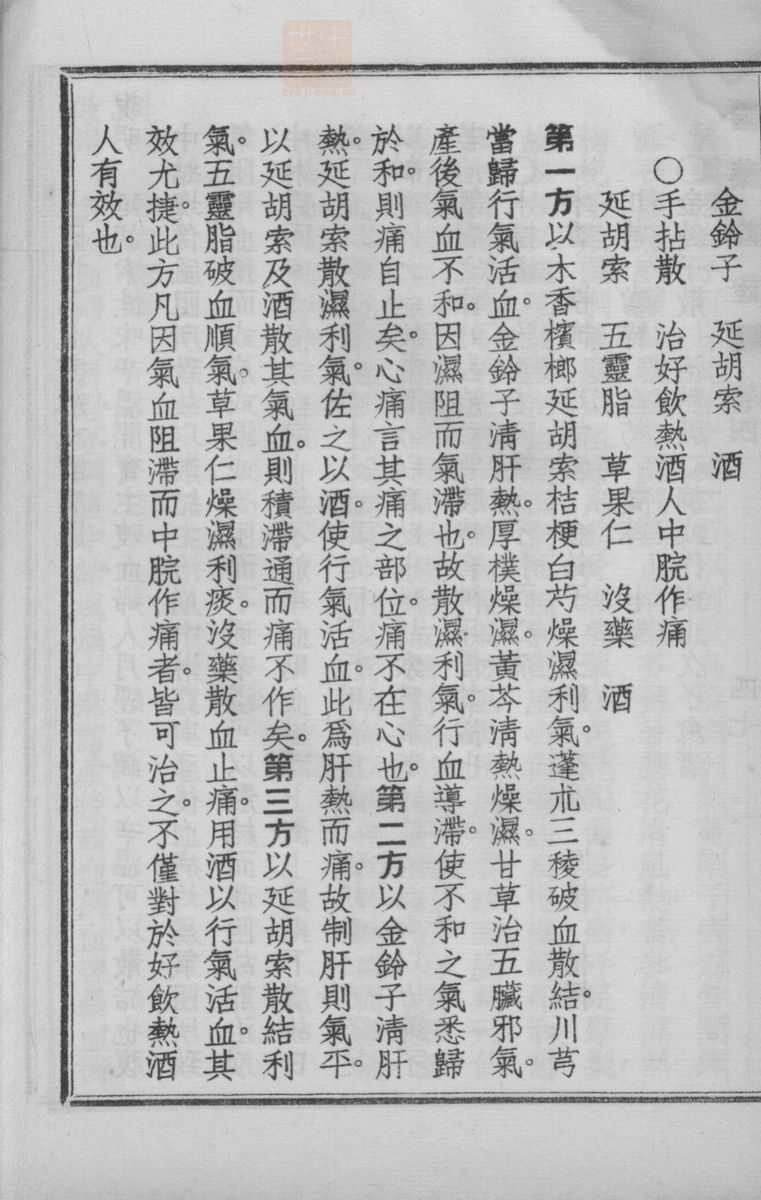 金鈴子　延胡索　酒
○手拈散　治好飲熱酒人中脘作痛
延胡索　五靈脂　草果仁　沒藥　酒
第一方以木香檳榔延胡索桔梗白芍燥濕利氣。蓬朮三稜破血散結。川芎
當歸行氣活血。金鈴子淸肝熱。厚樸燥濕。黃芩淸熱燥濕。甘草治五臟邪氣。
產後氣血不和。因濕阻而氣滯也。故散濕利氣。行血導滯。使不和之氣悉歸
於和。則痛自止矣。心痛言其痛之部位。痛不在心也。第二方以金鈴子淸肝
熱。延胡索散濕利氣。佐之以酒。使行氣活血。此爲肝熱而痛。故制肝則氣平。
以延胡索及酒散其氣血。則積滯通而痛不作矣。第三方以延胡索散結利
氣。五靈脂破血順氣。草果仁燥濕利痰。沒藥散血止痛。用酒以行氣活血。其
效尤捷。此方凡因氣血阻滯而中脘作痛者。皆可治之。不僅對於好飲熱酒
人有效也。